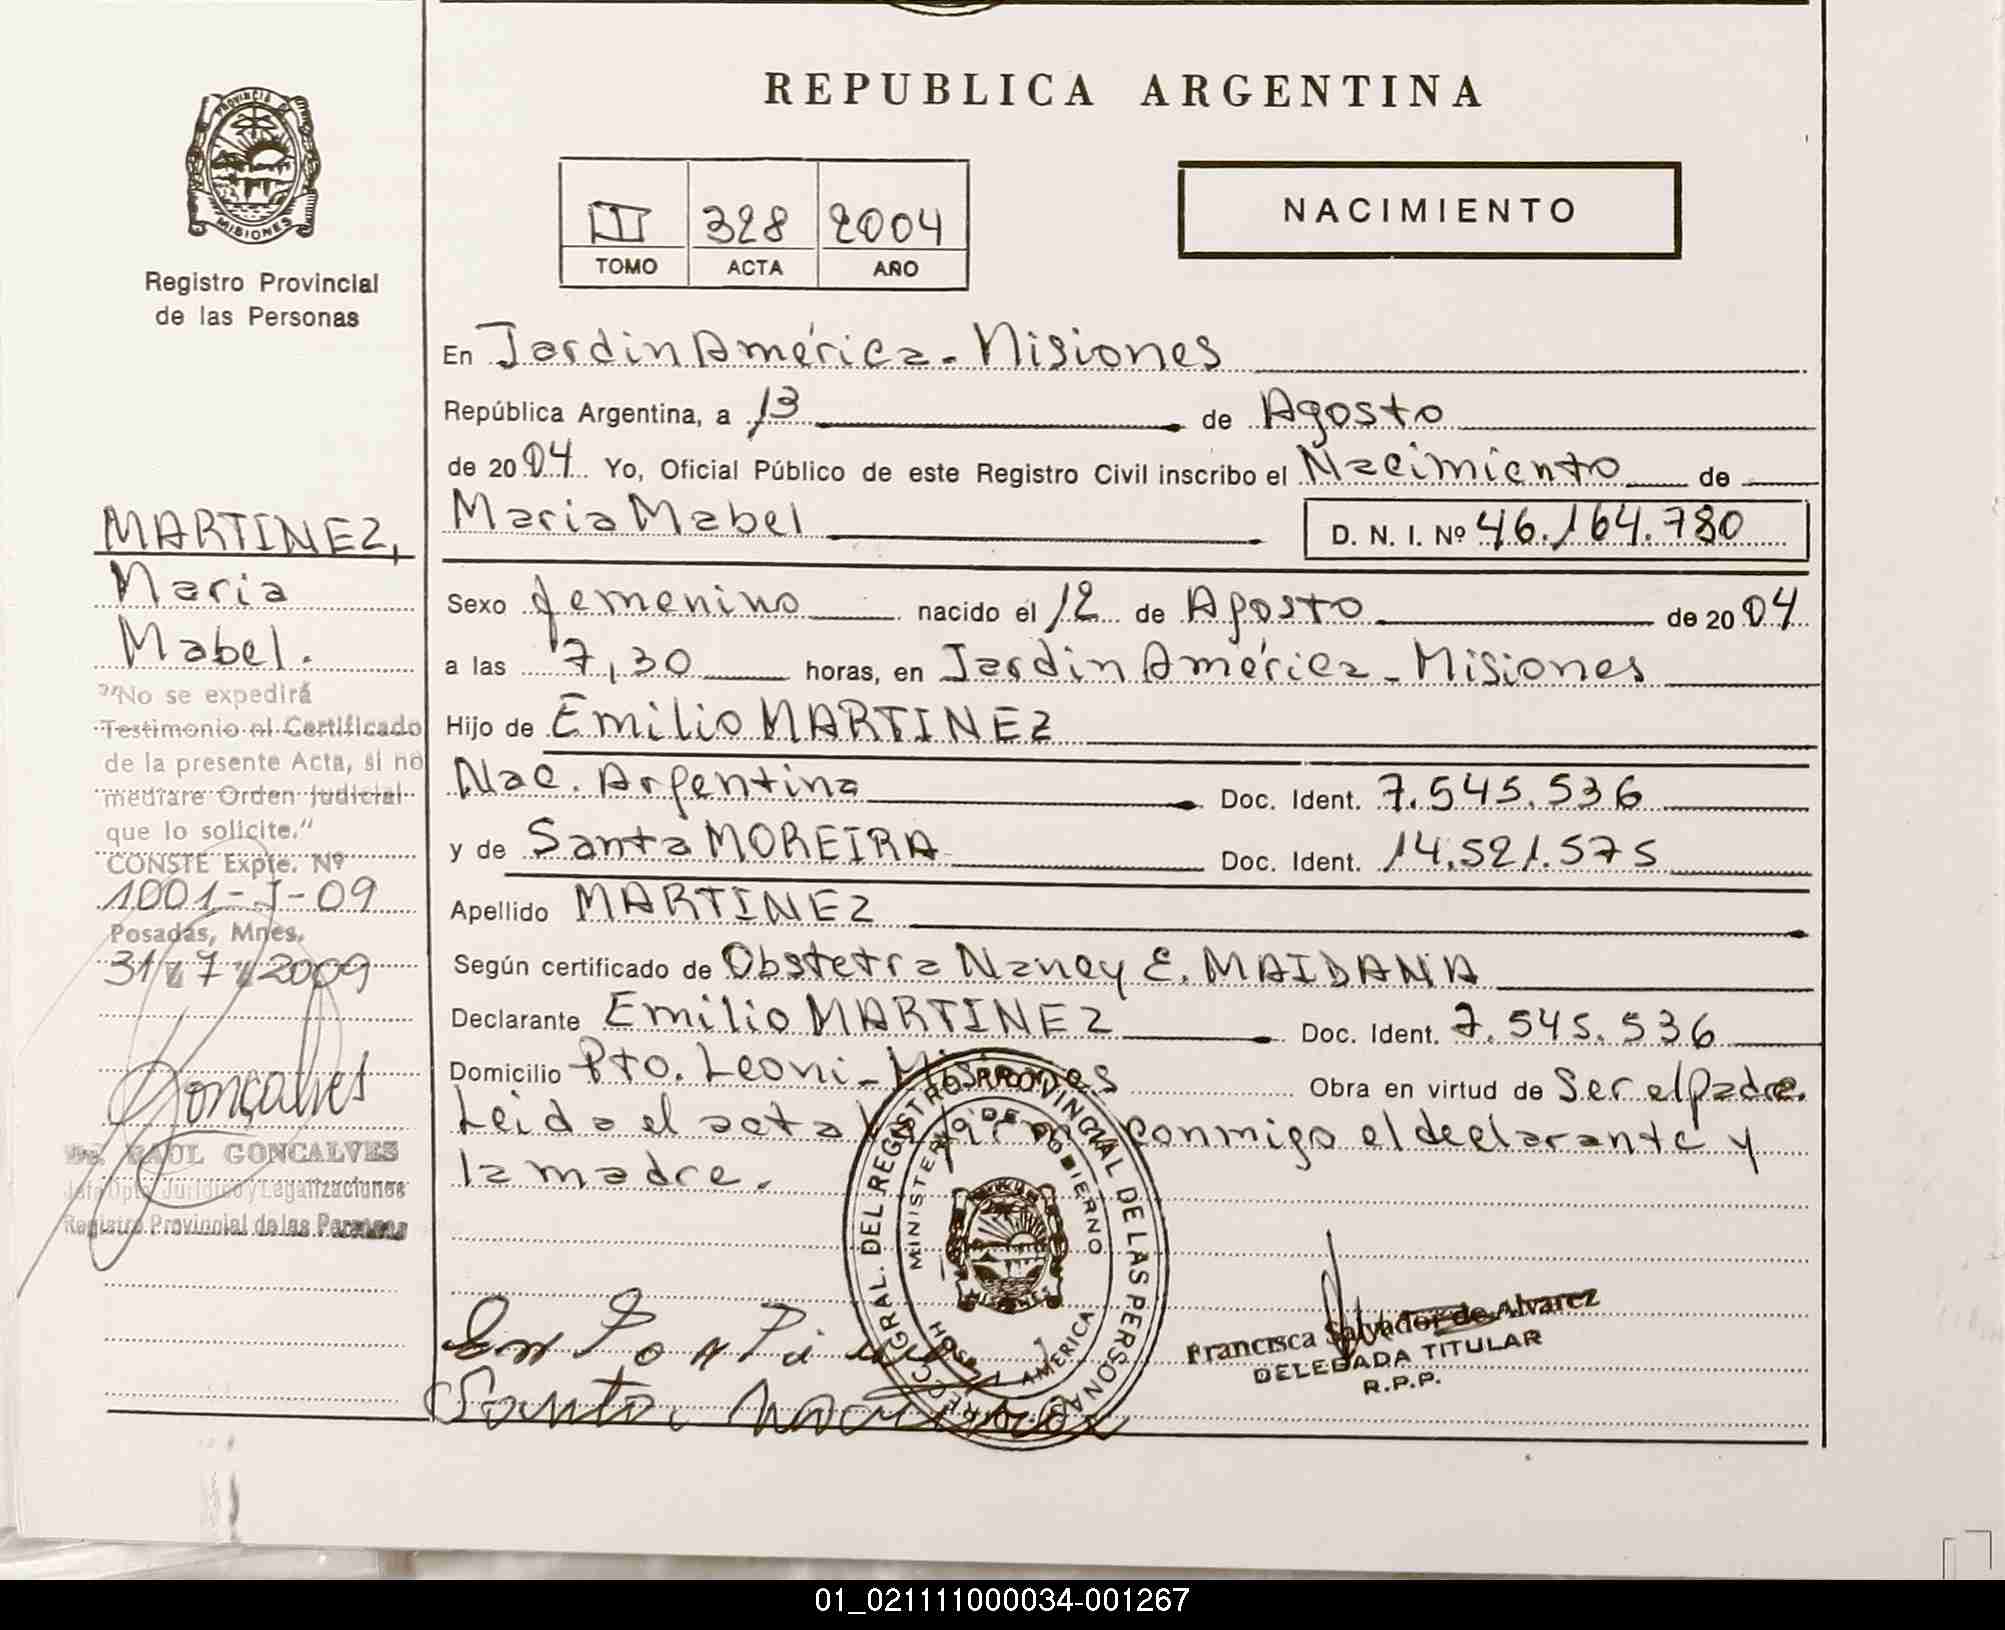 REPUBLICA ARGENTINA
PROVINCIA D
MISIONES
Registro Provincial
de las Personas
III 328 2004
TOMO ACTA AÑO
NACIMIENTO
En Jardin América - Misiones
República Argentina, a 13 de Agosto
de 2004 Yo, Oficial Público de este Registro Civil inscribo el Nacimiento de
Maria Mabel D. N. I. Nº 46.164.780
Sexo femenino nacido el 12 de Agosto de 2004
a las 7,30 horas, en Jardin América - Misiones
Hijo de Emilio MARTINEZ
Nac. Argentina Doc. Ident. 7.545.536
y de Santa MOREIRA Doc. Ident. 14.521.575
Apellido MARTINEZ
Según certificado de Obstetra Nancy E. MAIDANA
Declarante Emilio MARTINEZ Doc. Ident. 7.545.536
Domicilio Pto. Leoni - Misiones Obra en virtud de Ser el Padre.
Leida el acta la firman conmigo el declarante y
la madre.
MARTINEZ,
Maria
Mabel.
"No se expedirá
Testimonio ni Certificado
de la presente Acta, si no
mediare Orden Judicial
que lo solicite."
CONSTE Expte. Nº
1001-J-09
Posadas, Mnes.
31/7/2009
Gonçalves
Dr. RAUL GONCALVES
Jefe Dpto. Jurídico y Legalizaciones
Registro Provincial de las Personas
GRAL. DEL REGISTRO PROVINCIAL DE LAS PERSONAS
MINISTERIO DE GOBIERNO
MISIONES
AMERICA
Francisca Salvador de Alvarez
DELEGADA TITULAR
R.P.P.
01_021111000034-001267